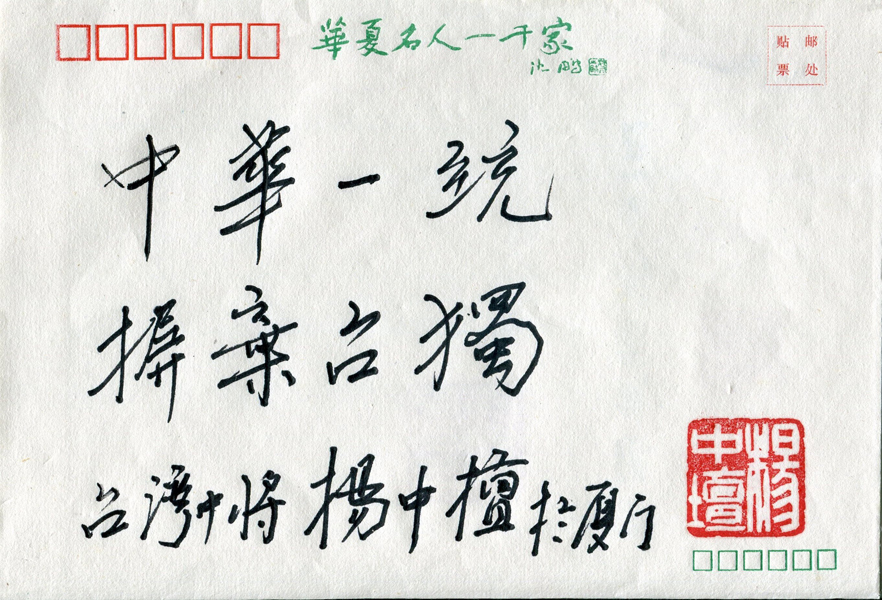 華夏名人一千家
沈鹏
贴邮
票处
中華一統
摒棄台獨
台灣中將 楊中壇於厦门
楊中壇